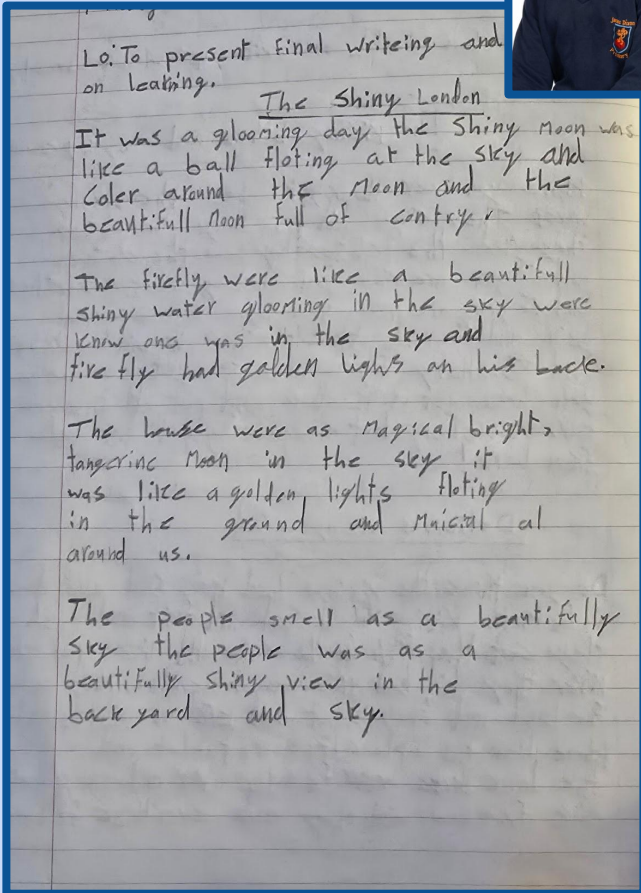 Lo: To present final writeing and
on learning.
The Shiny London
It was a glooming day the Shiny Moon was
like a ball floting at the sky and
Coler around the Moon and the
beautifull Moon full of contry.
The firefly were like a beautifull
shiny water glooming in the sky were
know one was in the sky and
fire fly had golden lighs an his back.
The house were as Magical bright,
tangerine Moon in the sky it
was like a golden lights floting
in the ground and Maicial al
around us.
The people smell as a beautifully
sky the people was as a
beautifully shiny view in the
back yard and sky.